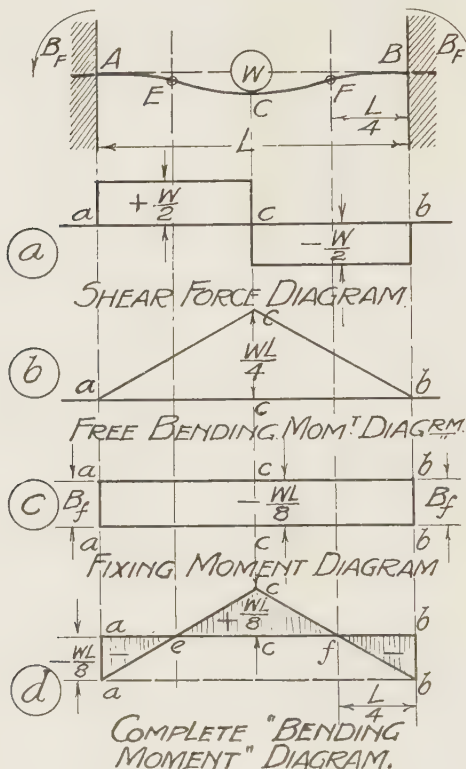 B_F A W B B_F
E C F
L/4
L
a + W/2 c b
a - W/2
SHEAR FORCE DIAGRAM
b c
WL/4
a c b
FREE BENDING MOM^T DIAGRM.
a c b
c B_f - WL/8 B_f
a c b
FIXING MOMENT DIAGRAM
c
a + WL/8 b
- WL/8 - e c f -
d a L/4 b
COMPLETE "BENDING
MOMENT" DIAGRAM.